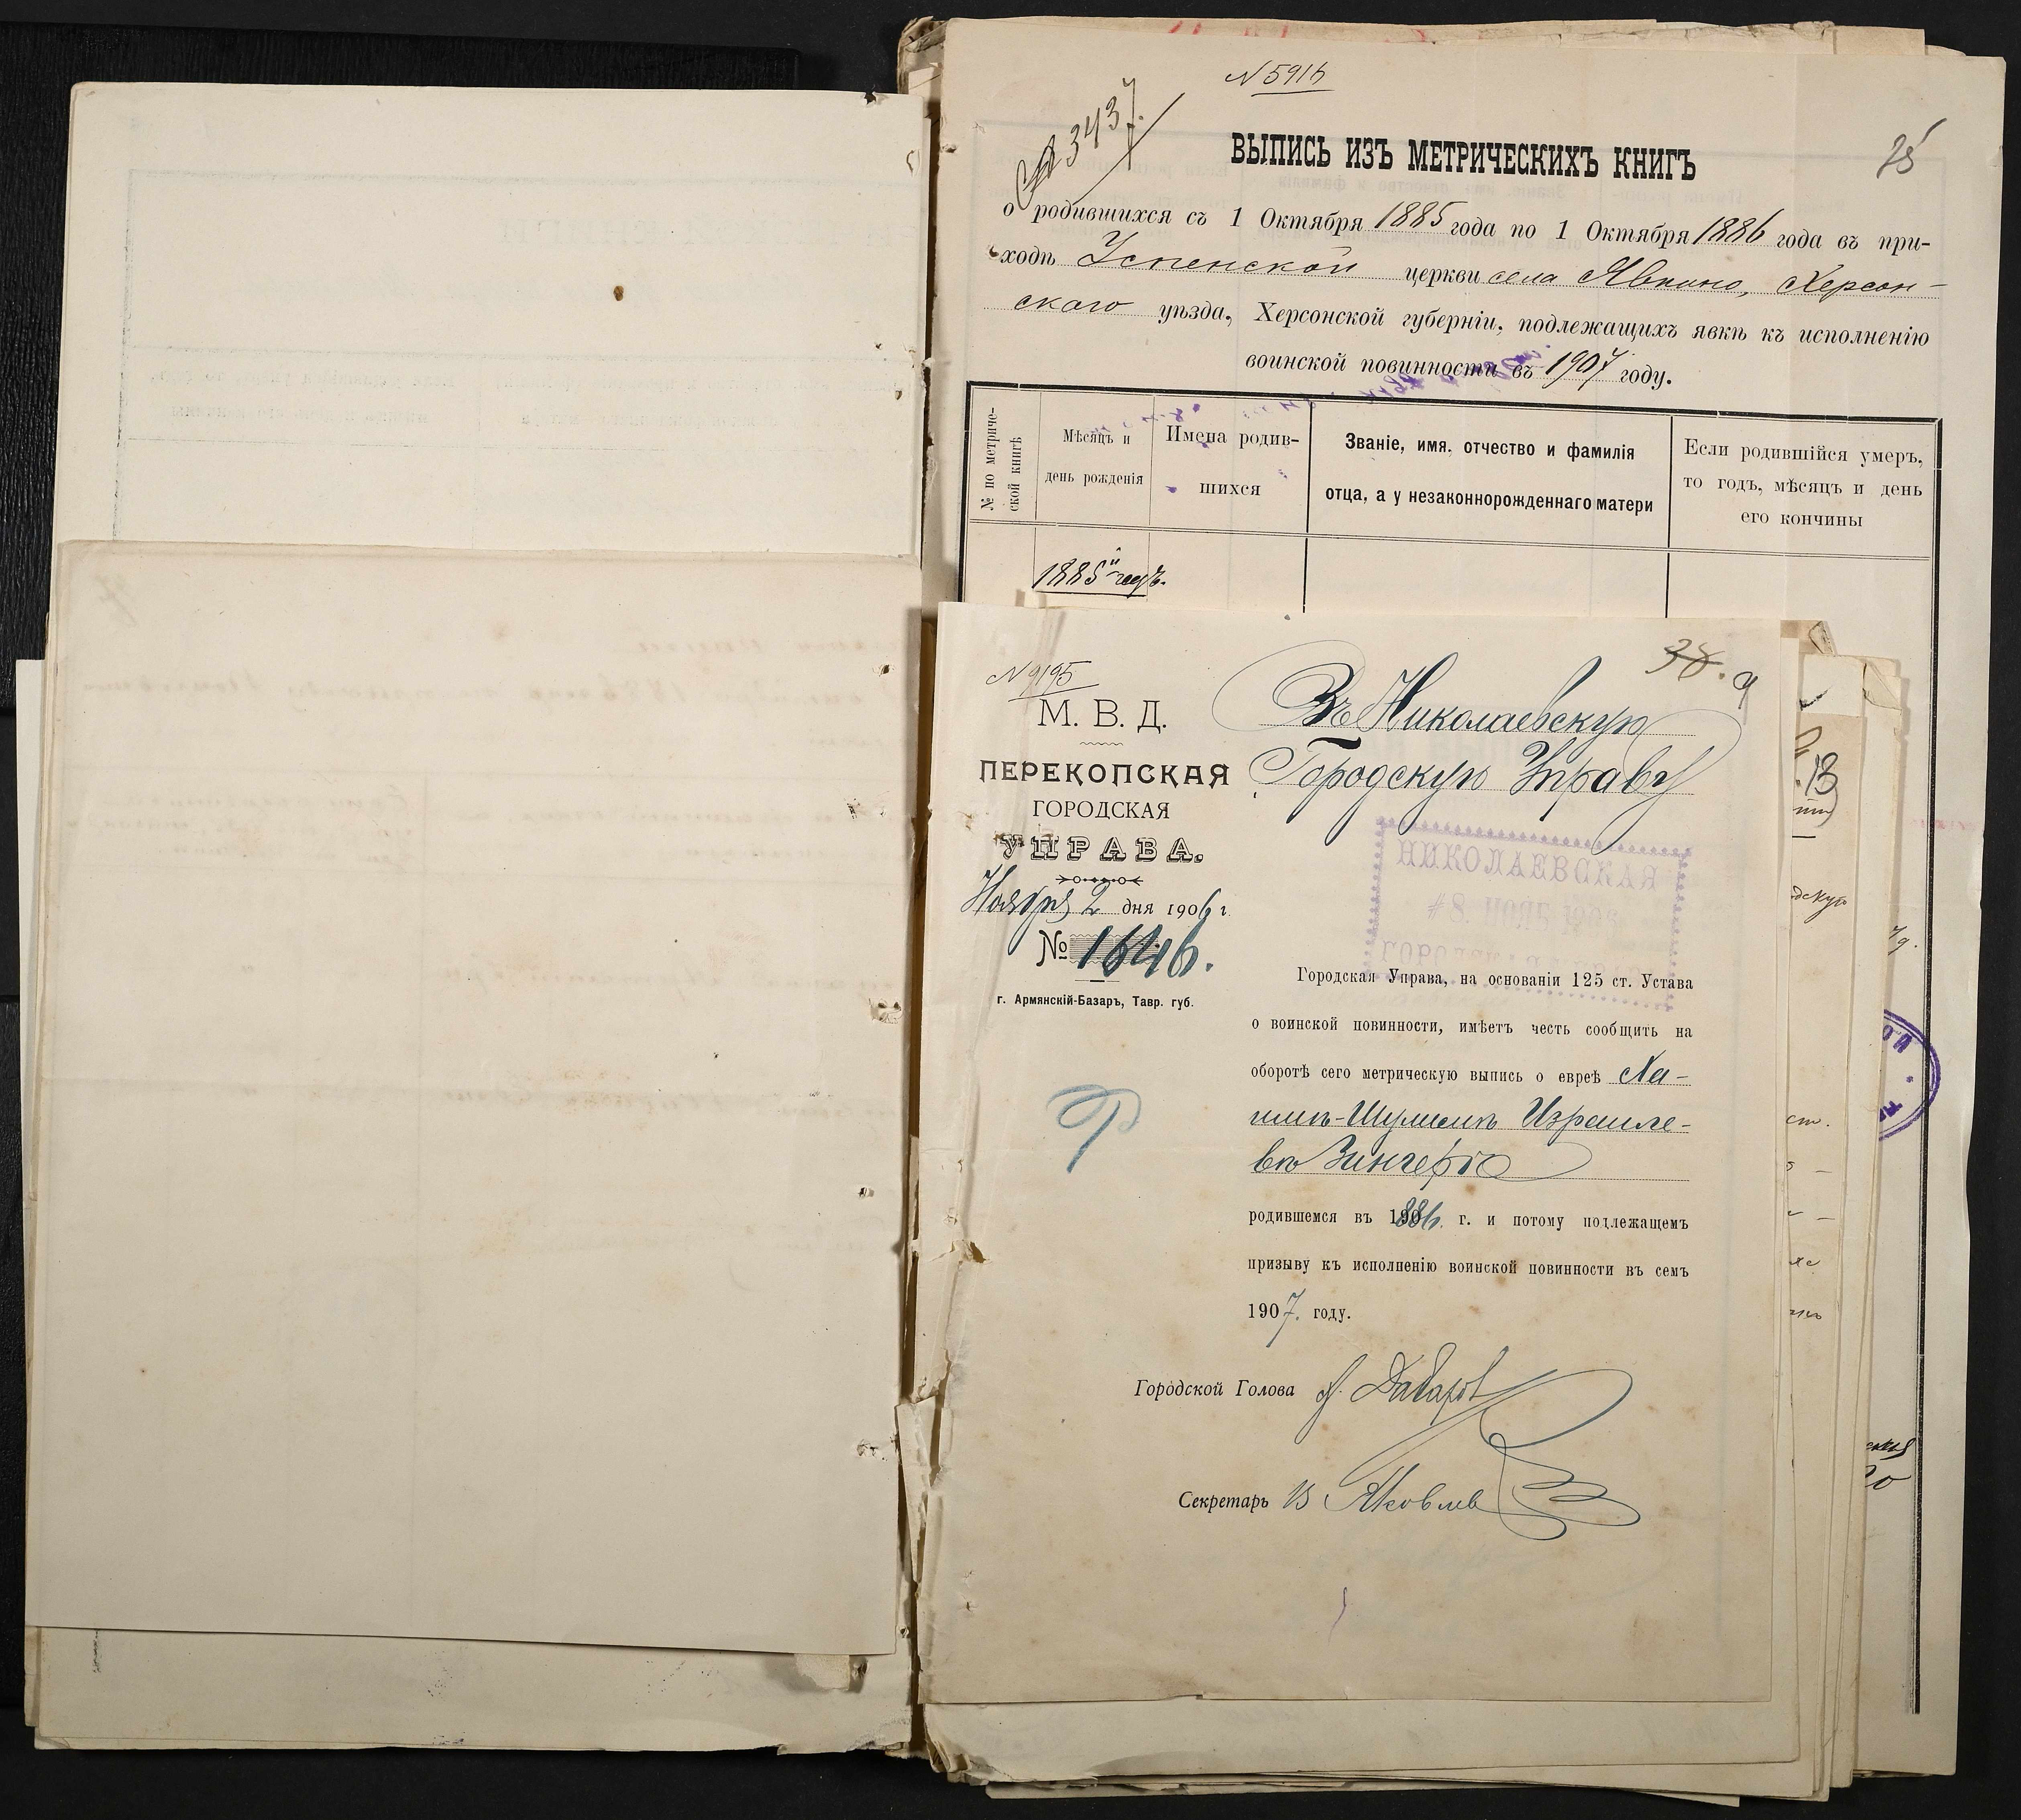 N 5916
3437.
25
ВЫПИСЬ ИЗЪ МЕТРИЧЕСКИХЪ КНИГЪ
о родившихся съ 1 Октября 1885 года по 1 Октября 1886 года въ при-
ходѣ Успенской церкви села Явкино, Херсон-
скаго уѣзда, Херсонской губерніи, подлежащихъ явкѣ къ исполненію
воинской повинности въ 1907 году.
№ по метриче-
ской книгѣ
Мѣсяцъ и
день рожденія
Имена родив-
шихся
Званіе, имя, отчество и фамилія
отца, а у незаконнорожденнаго матери
Если родившійся умеръ,
то годъ, мѣсяцъ и день
его кончины
1885й годъ.
38. 9
N 9195
М. В. Д.
ПЕРЕКОПСКАЯ
ГОРОДСКАЯ
УПРАВА.
Ноября 2 дня 1906 г.
№ 1646.
г. Армянскій-Базаръ, Тавр. губ.
Въ Николаевскую
Городскую Управу
НИКОЛАЕВСКАЯ
8. НОЯБ. 190
Городская Управа, на основаніи 125 ст. Устава
о воинской повинности, имѣетъ честь сообщить на
оборотѣ сего метрическую выпись о евреѣ Ха-
имѣ-Шулимѣ Израиле-
вѣ Зингерѣ
родившемся въ 1886 г. и потому подлежащемъ
призыву къ исполненію воинской повинности въ семъ
1907. году.
Городской Голова
Секретарь Яковлев
13